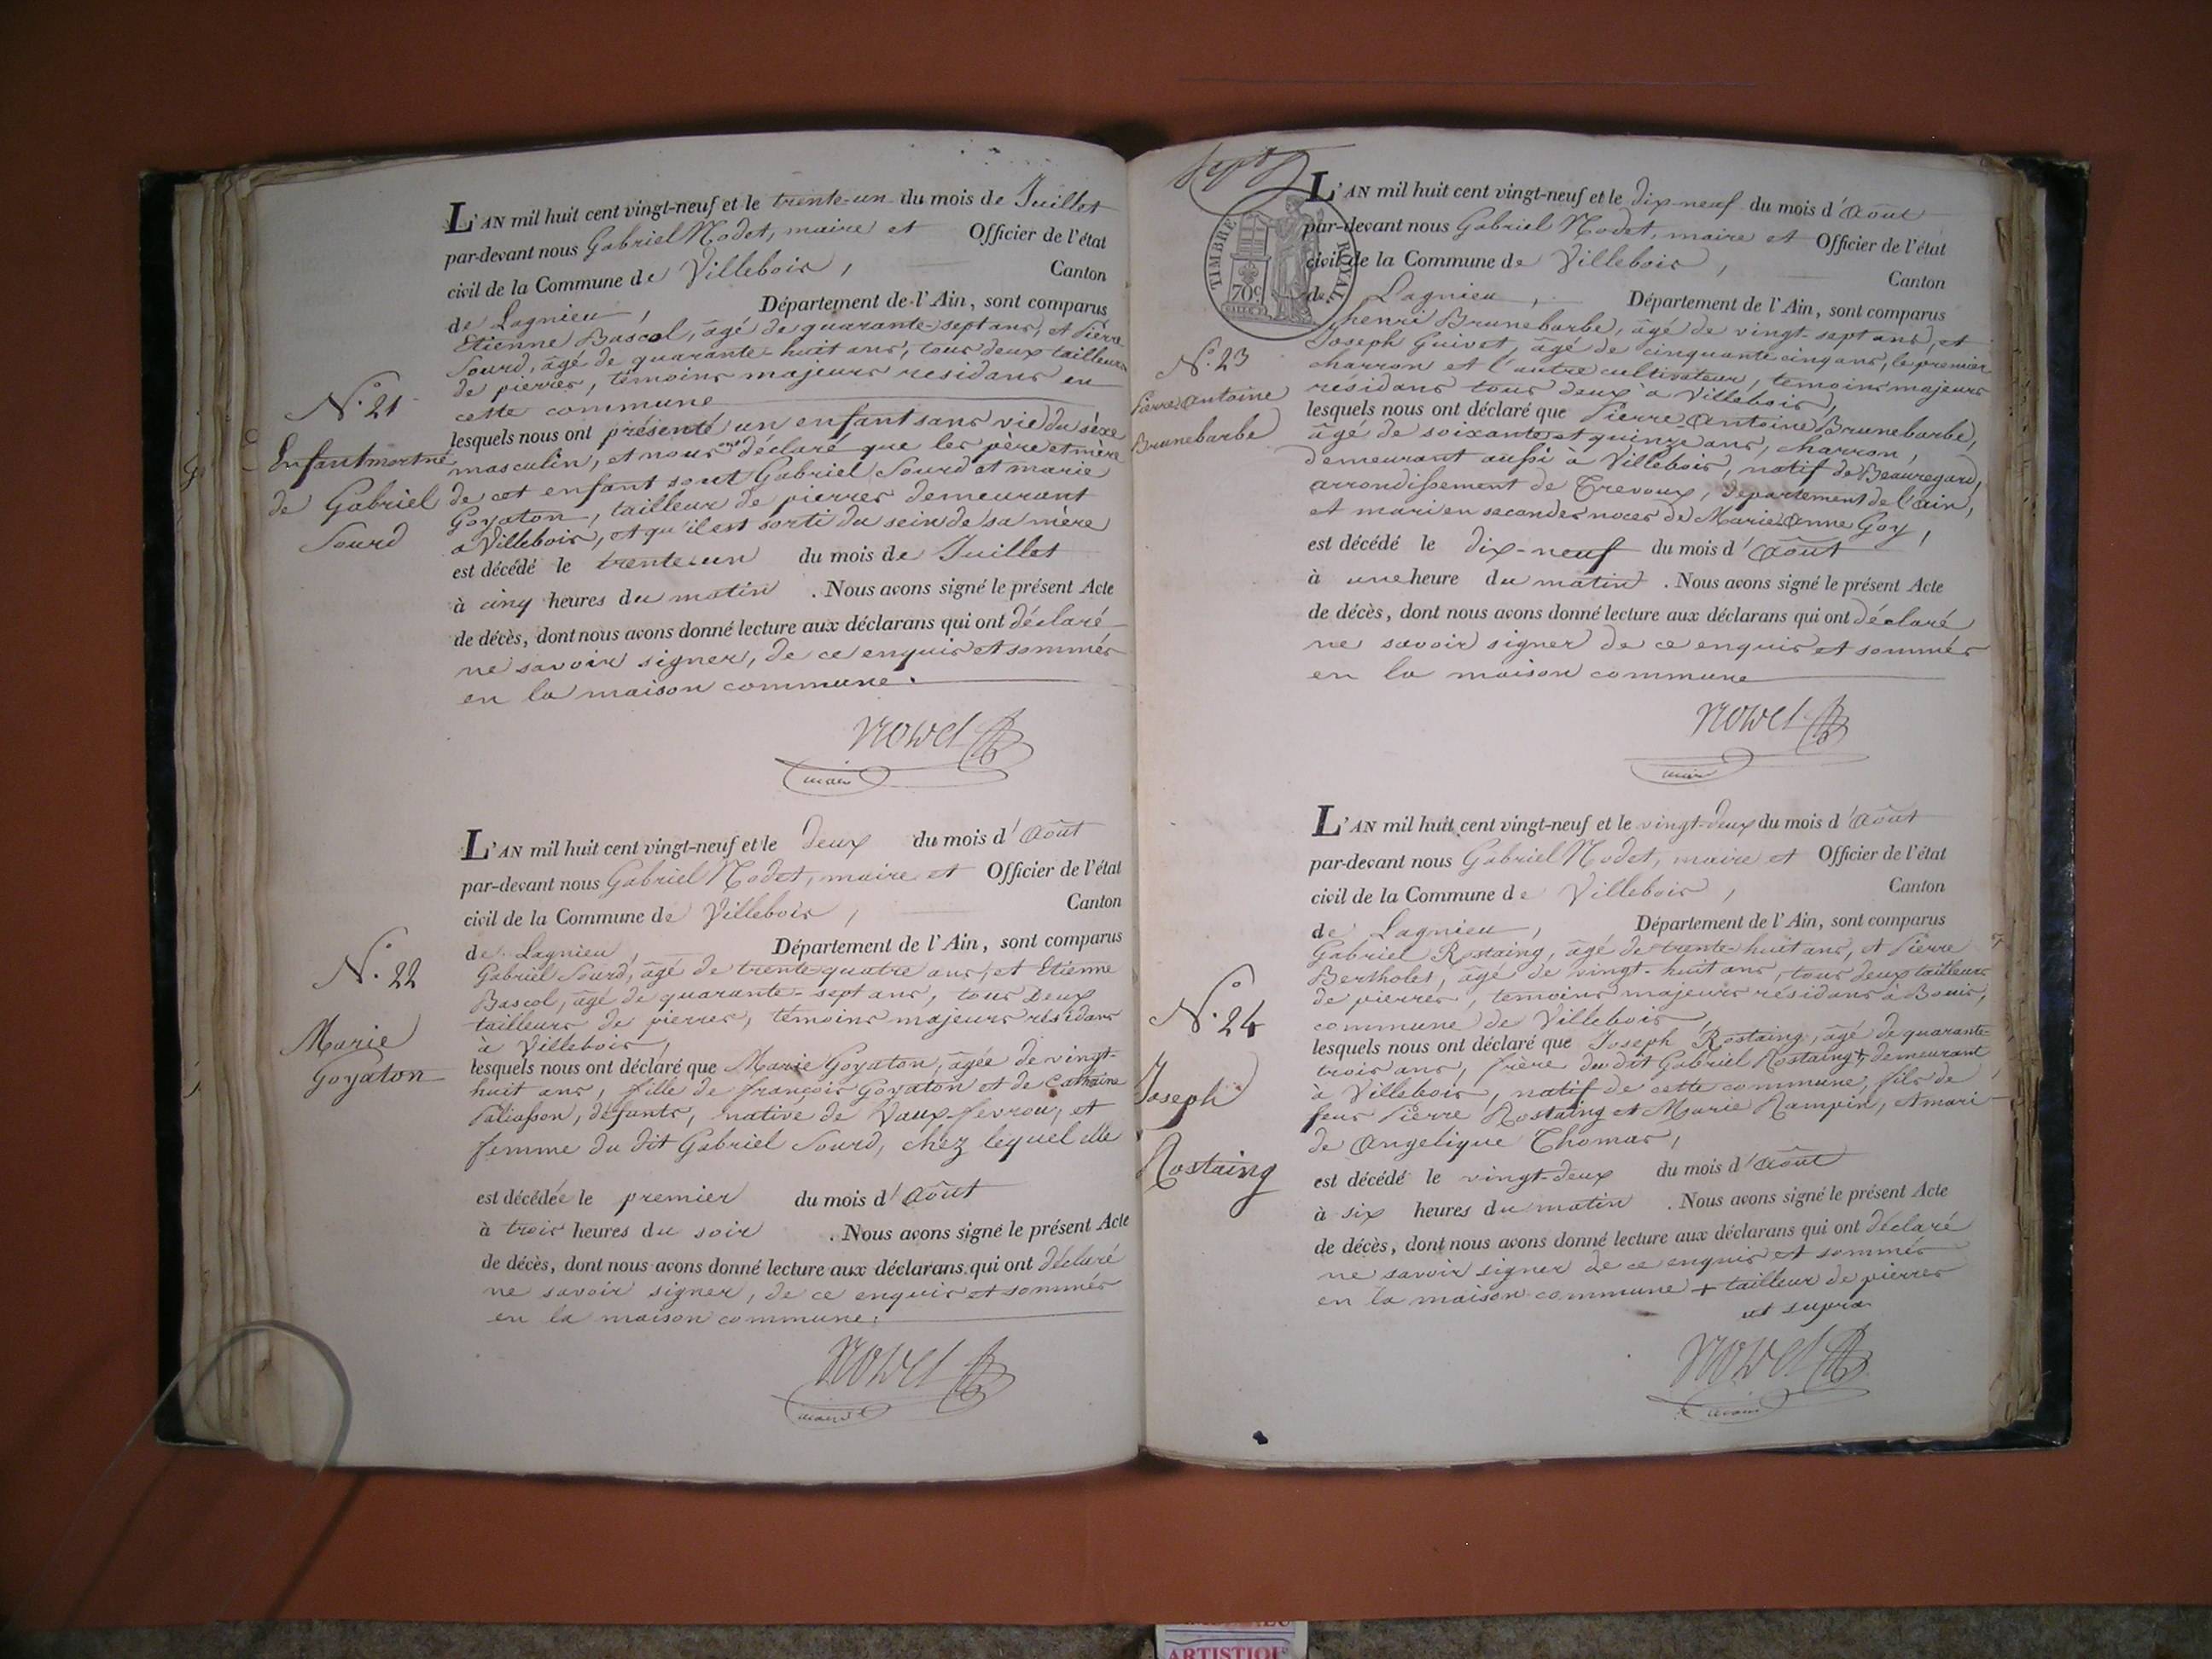 L'AN mil huit cent vingt-neuf et le trente-un du mois de Juillet
par-devant nous Gabriel Nodet, maire et Officier de l'état
civil de la Commune de Villebois, Canton
de Lagnieu, Département de l'Ain, sont comparus
Etienne Bascol, âgé de quarante-sept ans, et Pierre
Sourd, âgé de quarante-huit ans, tous deux tailleurs
de pierres, témoins majeurs residans en
cette commune
N.o 21
Enfant mort né
de Gabriel
Sourd
lesquels nous ont présenté un enfant sans vie du séxe
masculin, et nous ont déclaré que les père et mère
de cet enfant sont Gabriel Sourd et marie
Goyaton, tailleur de pierres demeurant
a Villebois, et qu'il est sorti du sein de sa mère
est décédé le trente-un du mois de Juillet
à cinq heures du matin . Nous avons signé le présent Acte
de décès, dont nous avons donné lecture aux déclarans qui ont déclaré
ne savoir signer, de ce enquis et sommés
en la maison commune.
Nodet
maire
L'AN mil huit cent vingt-neuf et le deux du mois d'Août
par-devant nous Gabriel Nodet, maire et Officier de l'état
civil de la Commune de Villebois, Canton
de Lagnieu, Département de l'Ain, sont comparus
Gabriel Sourd, âgé de trente-quatre ans, et Etienne
Bascol, âgé de quarante-sept ans, tous deux
tailleurs de pierres, témoins majeurs résidans
à Villebois,
N.o 22
Marie
Goyaton
lesquels nous ont déclaré que Marie Goyaton, âgée de vingt-
huit ans, fille de françois Goyaton et de Catherine
défunts, native de Vaux-fevrou, et
femme du dit Gabriel Sourd, chez lequel elle
est décédée le premier du mois d'Août
à trois heures du soir . Nous avons signé le présent Acte
de décès, dont nous avons donné lecture aux déclarans qui ont déclaré
ne savoir signer, de ce enquis et sommés
en la maison commune.
Nodet
maire
TIMBRE ROYAL
70c
L'AN mil huit cent vingt-neuf et le dix-neuf du mois d'Août
par-devant nous Gabriel Nodet, maire et Officier de l'état
civil de la Commune de Villebois, Canton
de Lagnieu, Département de l'Ain, sont comparus
henri Brunebarbe, âgé de vingt-sept ans, et
Joseph Guivet, âgé de cinquante cinq ans, le premier
charron et l'autre cultivateur, témoins majeurs
residans tous deux à Villebois,
N.o 23
Pierre Antoine
Brunebarbe
lesquels nous ont déclaré que Pierre Antoine Brunebarbe,
âgé de soixante et quinze ans, charron,
demeurant aussi à Villebois, natif de Beauregard,
arrondissement de Trevoux, département de l'ain,
et mari en secondes noces de Marie Anne Goy,
est décédé le dix-neuf du mois d'Août
à une heure du matin . Nous avons signé le présent Acte
de décès, dont nous avons donné lecture aux déclarans qui ont déclaré
ne savoir signer de ce enquis et sommés
en la maison commune
Nodet
maire
L'AN mil huit cent vingt-neuf et le vingt-deux du mois d'Août
par-devant nous Gabriel Nodet, maire et Officier de l'état
civil de la Commune de Villebois, Canton
de Lagnieu, Département de l'Ain, sont comparus
Gabriel Rostaing, âgé de trente-huit ans, et Pierre
Bertholet, âgé de vingt-huit ans, tous deux tailleurs
de pierres, témoins majeurs résidans à Bouis,
commune de Villebois,
N.o 24
Joseph
Rostaing
lesquels nous ont déclaré que Joseph Rostaing, âgé de quarante-
trois ans, frère du dit Gabriel Rostaing +, demeurant
à Villebois, natif de cette commune, fils de
feus Pierre Rostaing et Marie Rampin, et mari
de Angelique Thomas,
est décédé le vingt-deux du mois d'Août
à six heures du matin . Nous avons signé le présent Acte
de décès, dont nous avons donné lecture aux déclarans qui ont déclaré
ne savoir signer de ce enquis et sommés
en la maison commune + tailleur de pierres
ut supra
Nodet
maire